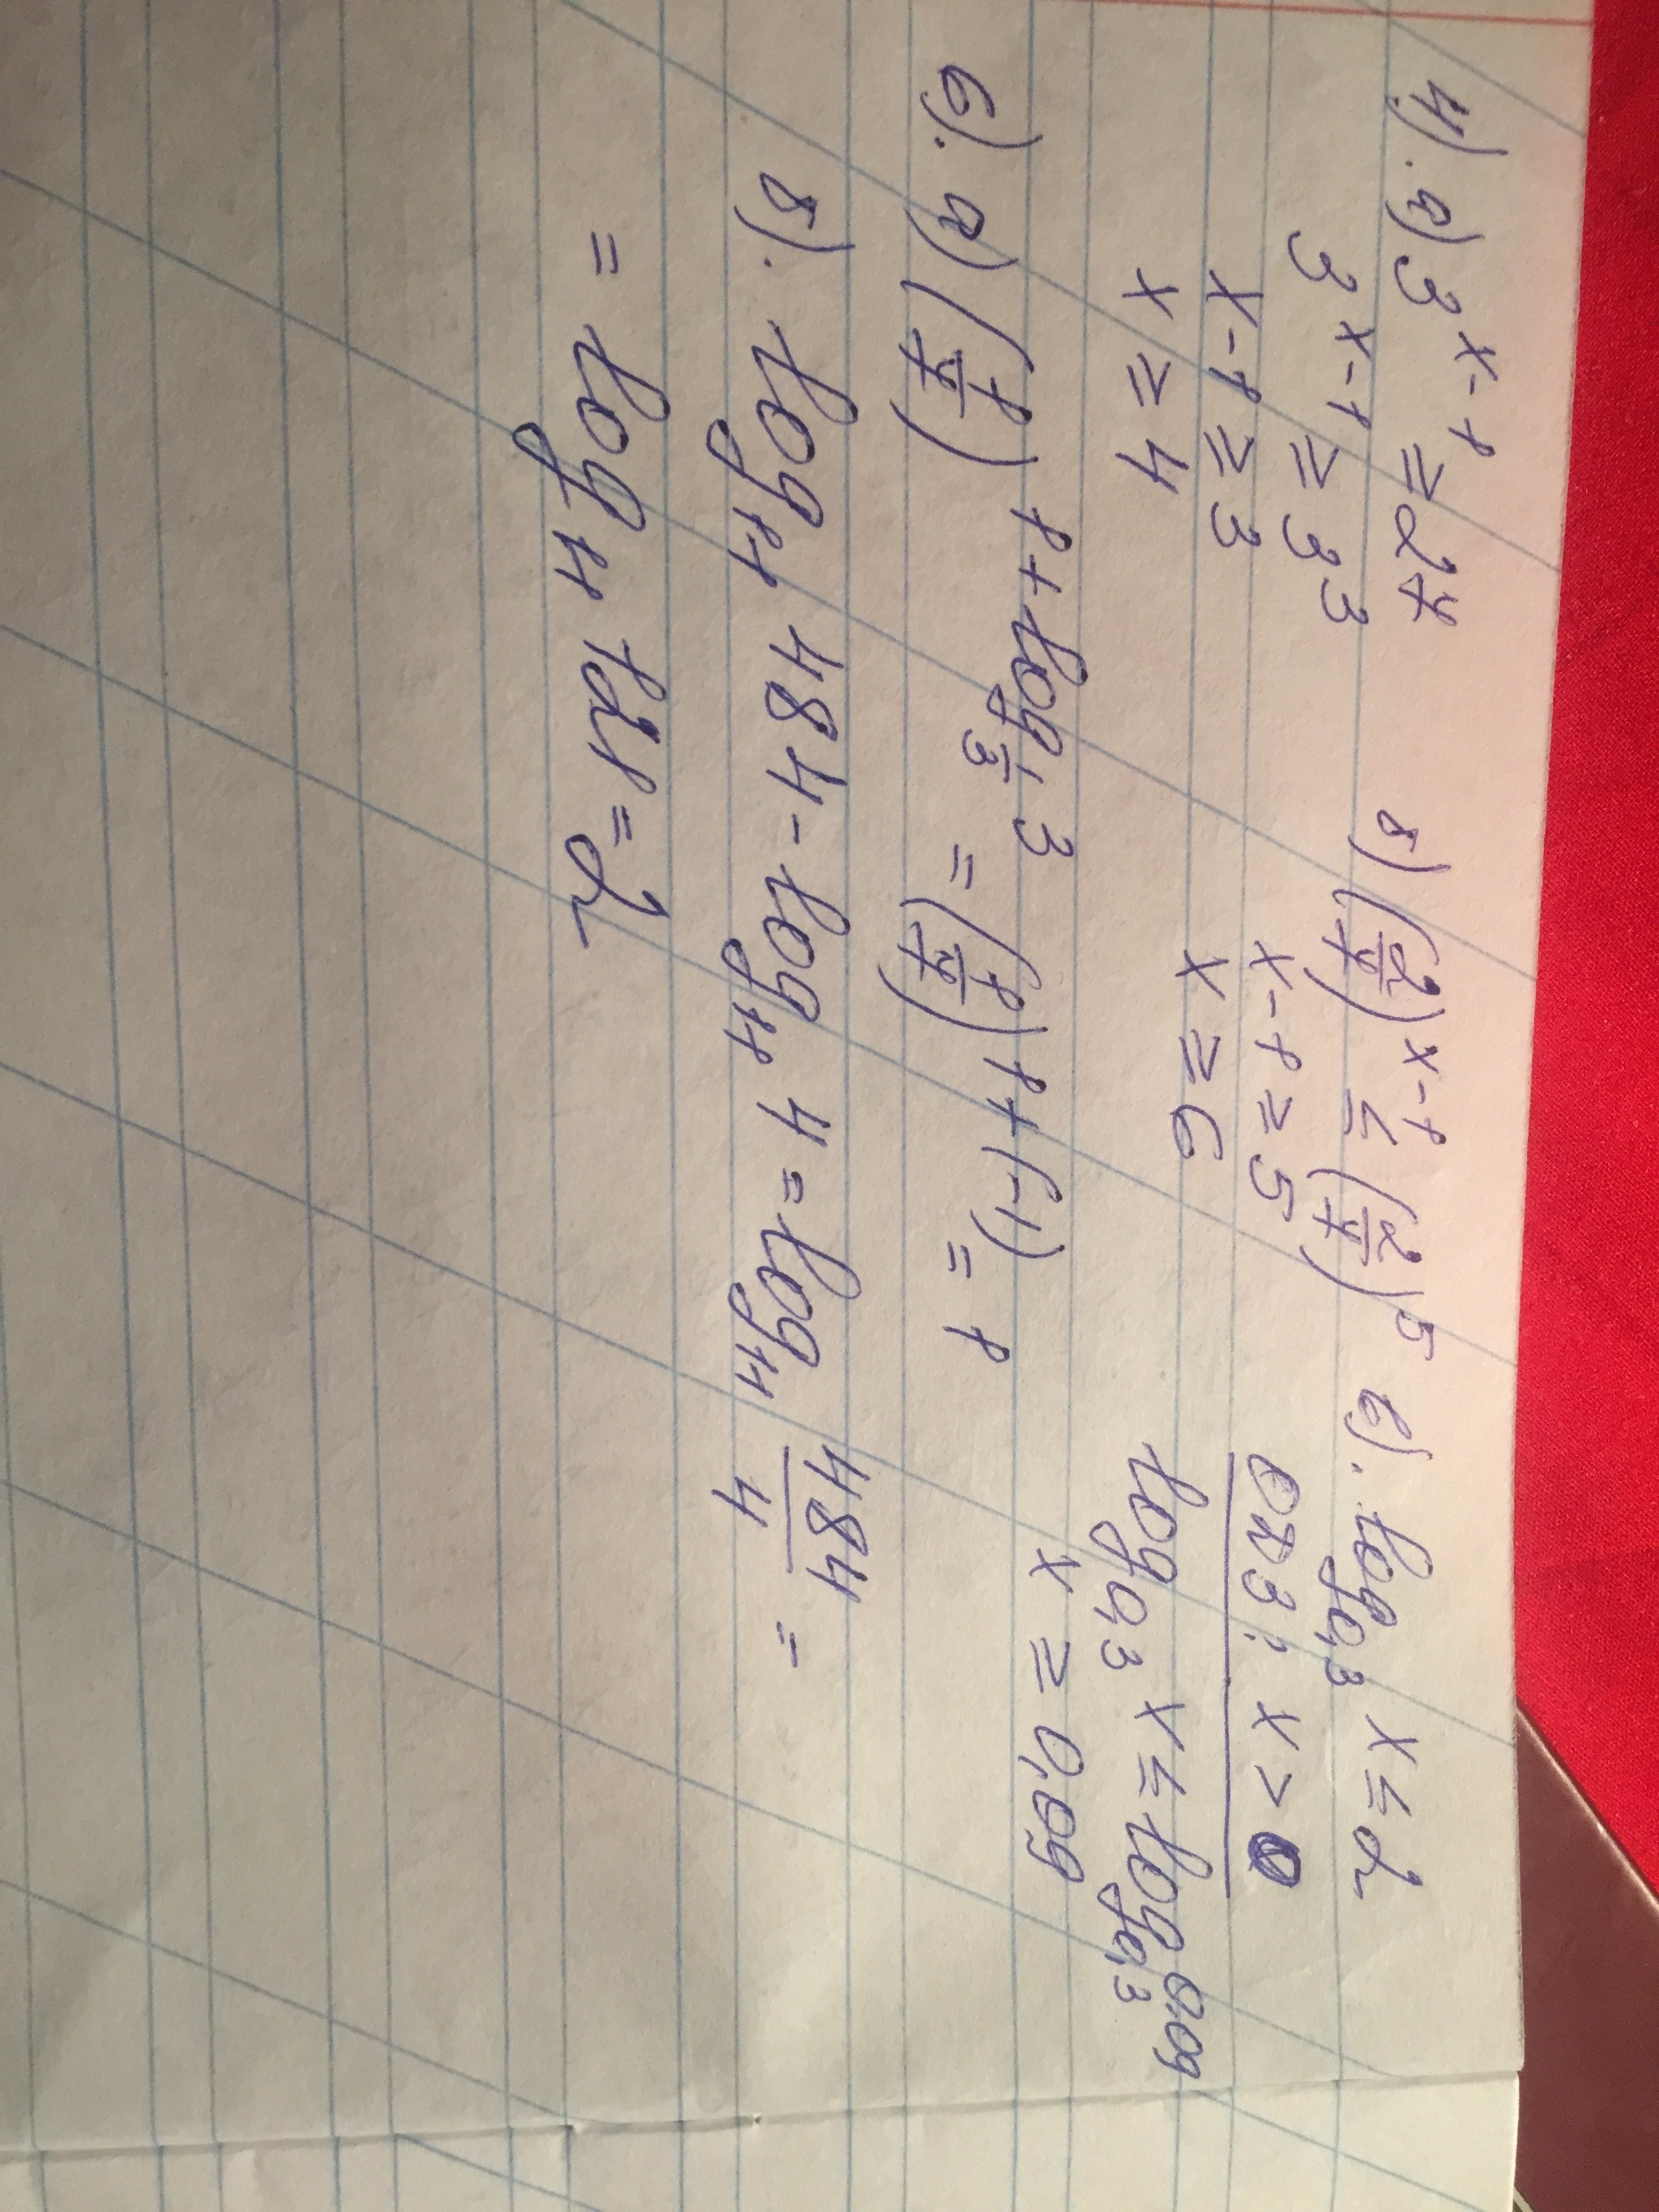 4). а) 3^(x-1) ≥ 27
3^(x-1) ≥ 3^3
x-1 ≥ 3
x ≥ 4
б) (2/7)^(x-1) ≤ (2/7)^5
x-1 ≥ 5
x ≥ 6
в). log_0,3 x ≤ 2
ОДЗ: x > 0
log_0,3 x ≤ log_0,3 0,09
x ≥ 0,09
6). а) (1/7)^(1+log_(1/3) 3) = (1/7)^(1+(-1)) = 1
б). log_11 484 - log_11 4 = log_11 484/4 =
= log_11 121 = 2